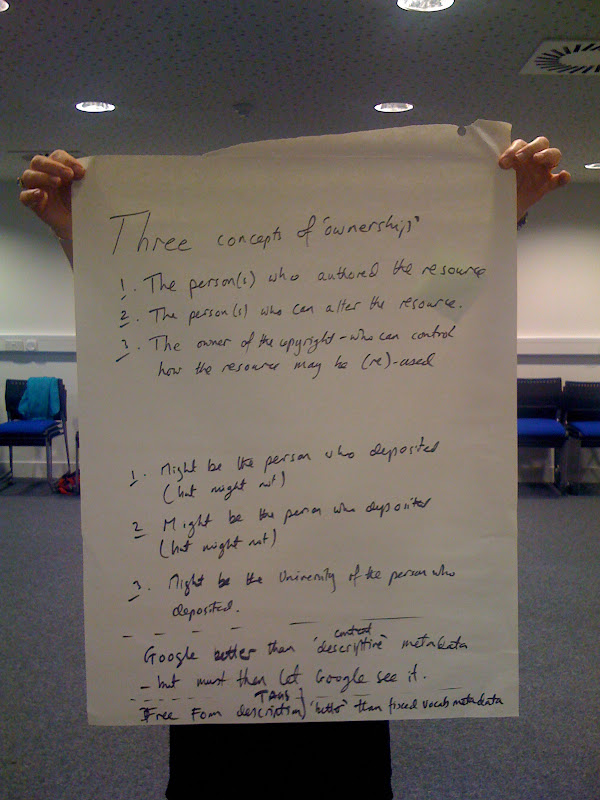 Three concepts of 'ownership'
1. The person(s) who authored the resource
2. The person(s) who can alter the resource.
3. The owner of the copyright - who can control
how the resource may be (re)-used
1. Might be the person who deposited
(but might not)
2 Might be the person who deposited
(but might not)
3. Might be the University of the person who
deposited.
content
Google better than 'descriptive' metadata
- but must then let Google see it.
TAGS
Free Form description 'better' than fixed vocab metadata